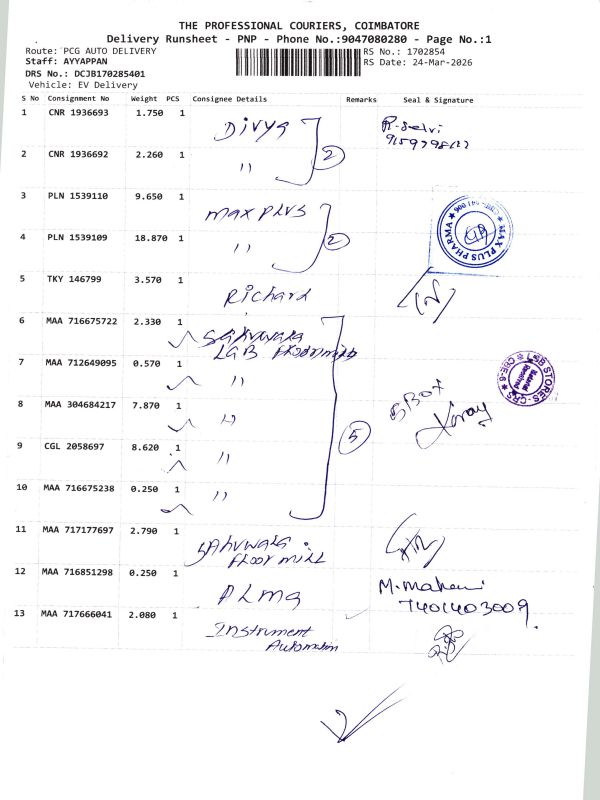 THE PROFESSIONAL COURIERS, COIMBATORE
Delivery Runsheet - PNP - Phone No.:9047080280 - Page No.:1
Route: PCG AUTO DELIVERY
RS No.: 1702854
Staff: AYYAPPAN
RS Date: 24-Mar-2026
DRS No.: DCJB170285401
Vehicle: EV Delivery
S No Consignment No Weight PCS Consignee Details Remarks Seal & Signature
1 CNR 1936693 1.750 1 Divya R. Selvi
2 CNR 1936692 2.260 1 " 2
3 PLN 1539110 9.650 1 Max Plus
MAX PLUS PHARMA
4 PLN 1539109 18.870 1 " 2
5 TKY 146799 3.570 1 Richard
6 MAA 716675722 2.330 1
LAB
7 MAA 712649095 0.570 1 "
STORES
8 MAA 304684217 7.870 1 " 5 BOX
9 CGL 2058697 8.620 1 " 5
10 MAA 716675238 0.250 1 "
11 MAA 717177697 2.790 1
Floor Mill
12 MAA 716851298 0.250 1 PLMG
7401403009.
13 MAA 717666041 2.080 1 Instrument
Automation